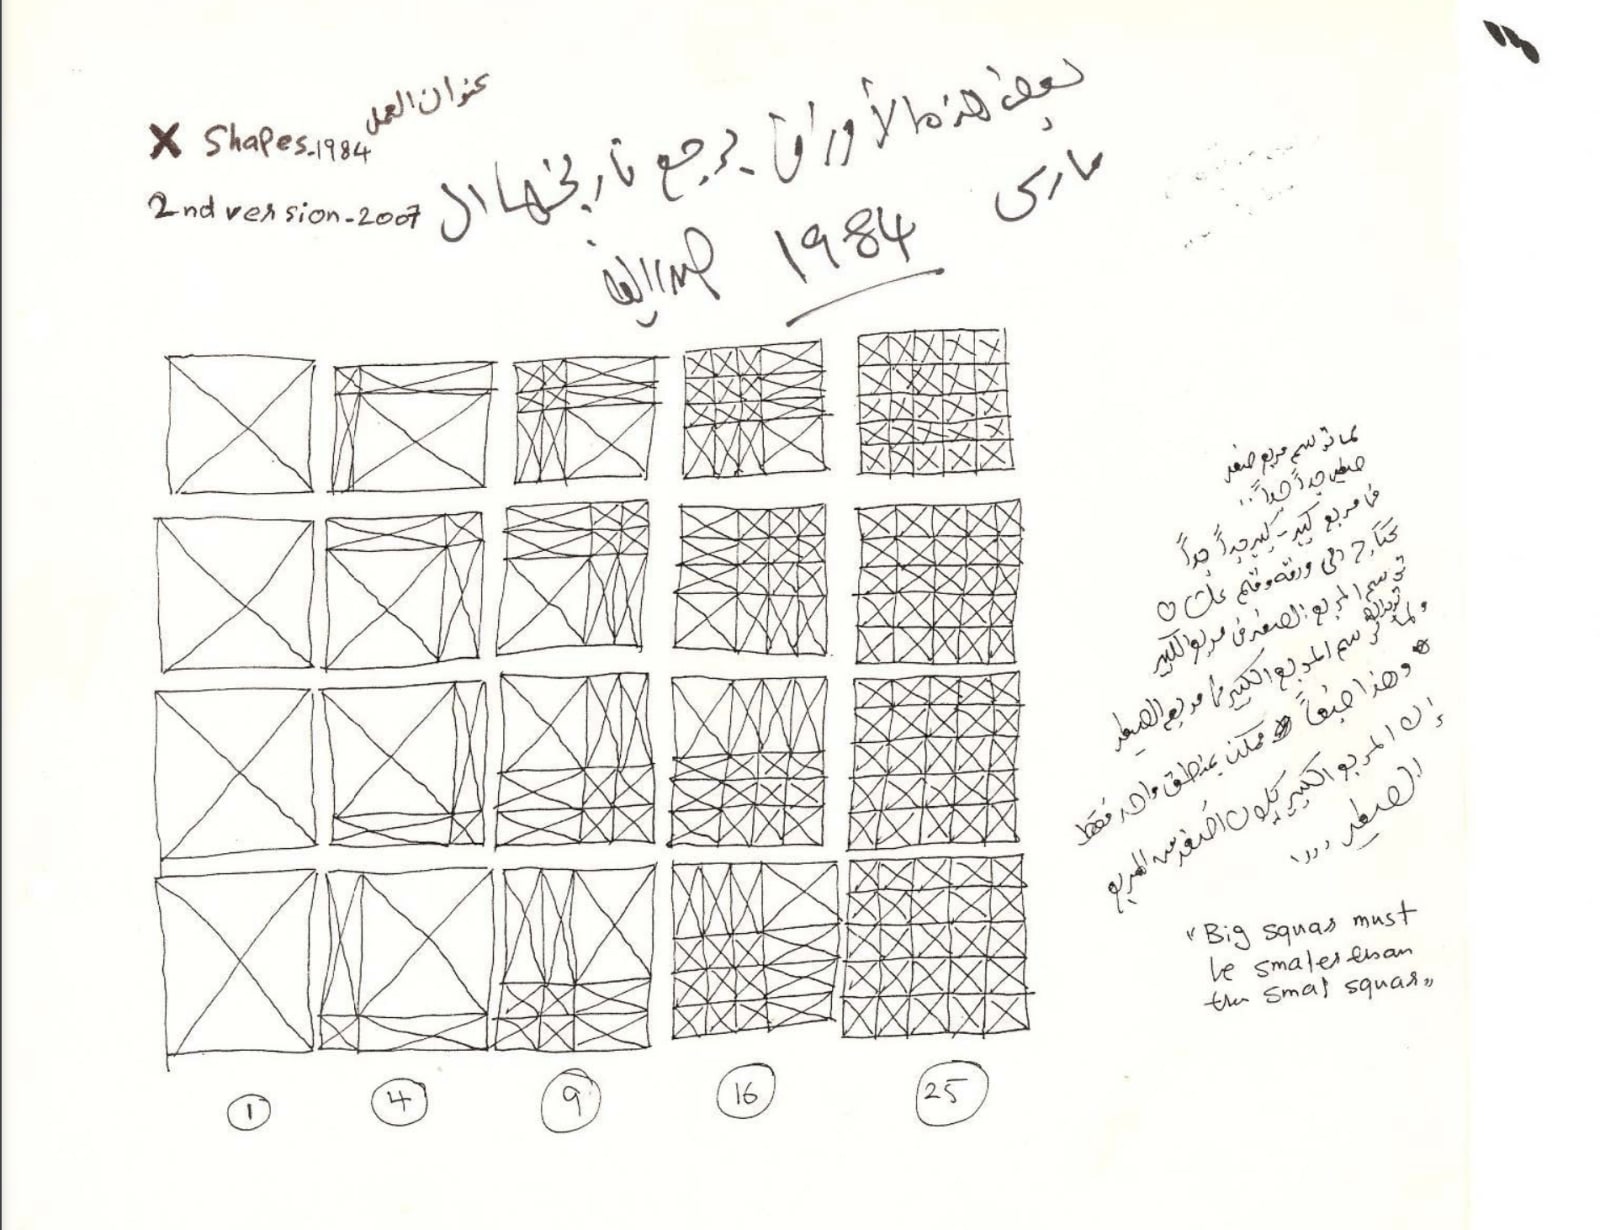 عنوان العمل
X Shapes-1984
2nd version-2007
بعض هذه الأوراق يرجع تاريخها الى
مارس
1984
لما ترسم مربع صغير
صغير جداً جداً..
في مربع كبير - كبير جداً جداً
تحتاج الى ورقة وقلم
ترسم المربع الصغير في مربع الكبير
ولما ترسم المربع الكبير في مربع الصغير
وهذا ممكن بمنطق واحد فقط
إن المربع الكبير يكون أصغر من المربع
الصغير ,,,
"Big squar must
be smaler than
the smal squar"
1
4
9
16
25